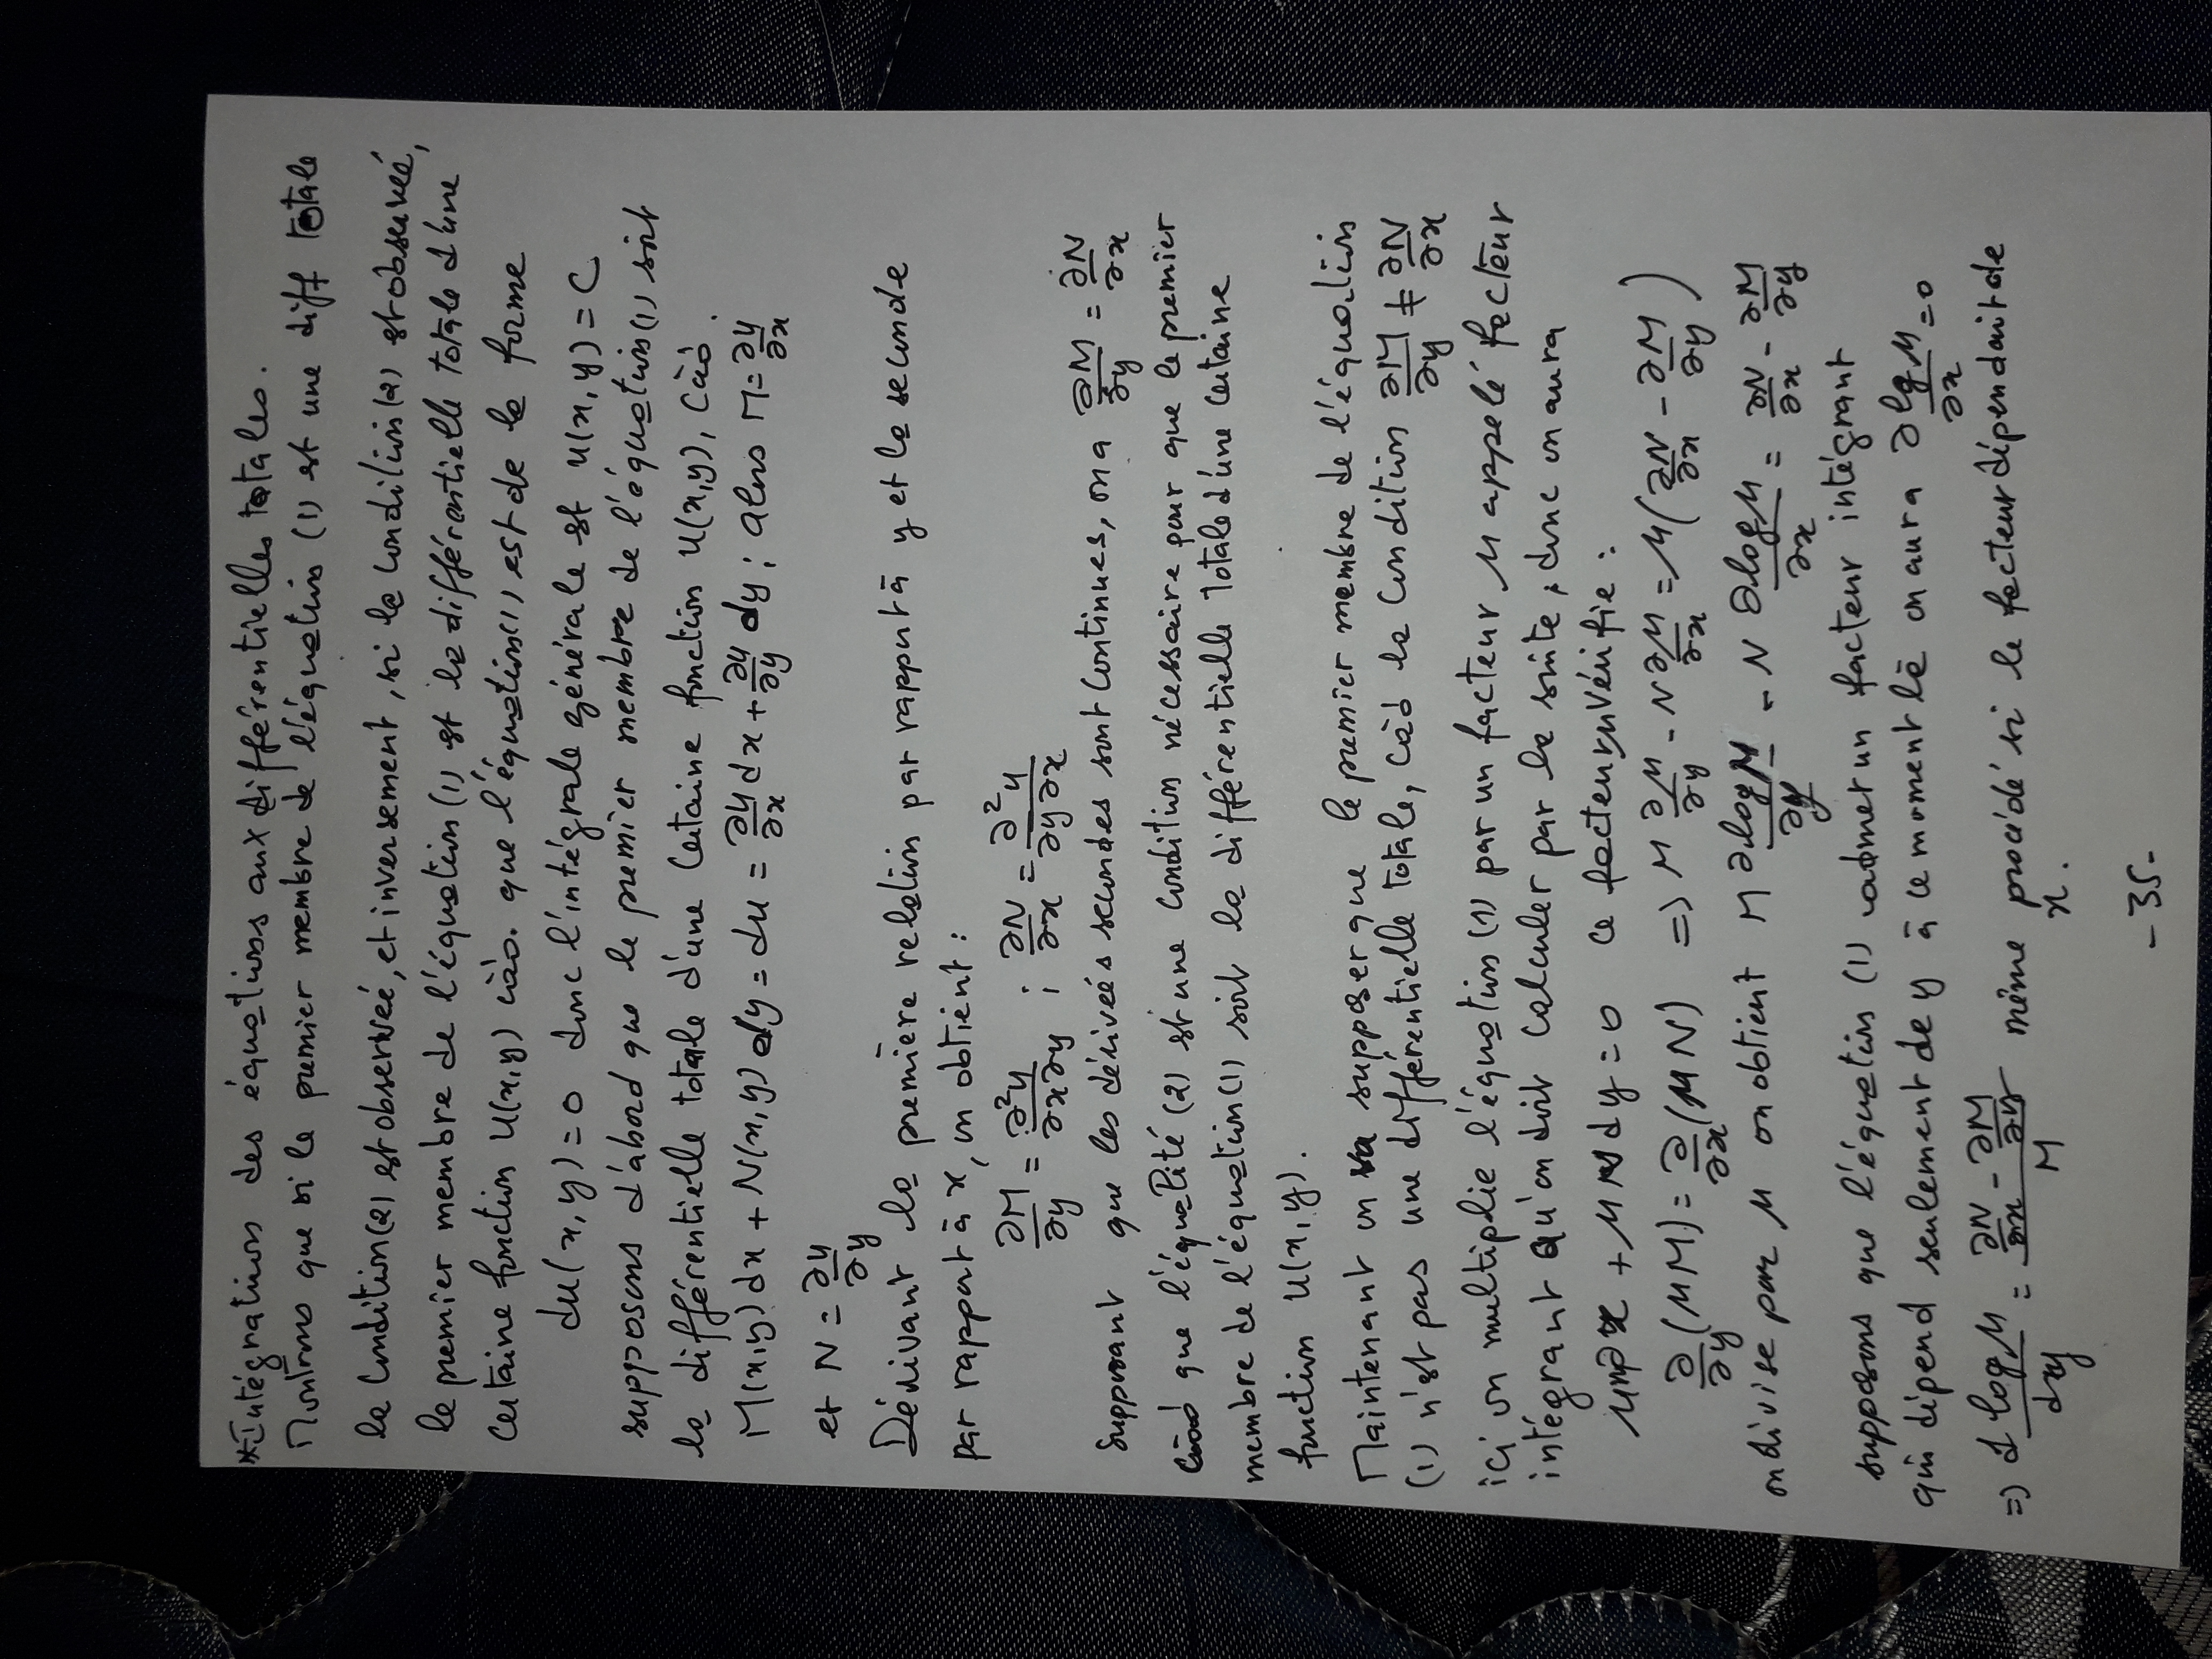 * Intégrations des équations aux différentielles totales.
Montrons que si le premier membre de l'équation (1) est une diff totale
la condition (2) est observée, et inversement, si la condition (2) est observée,
le premier membre de l'équation (1) est la différentielle totale d'une
certaine fonction u(x,y) càd. que l'équation (1) est de la forme
du(x,y) = 0 donc l'intégrale générale est u(x,y) = C
supposons d'abord que le premier membre de l'équation (1) soit
la différentielle totale d'une certaine fonction u(x,y), càd.
M(x,y)dx + N(x,y) dy = du = ∂u/∂x dx + ∂u/∂y dy ; alors M = ∂u/∂x
et N = ∂u/∂y
Dérivant la première relation par rapport à y et la seconde
par rapport à x, on obtient :
∂M/∂y = ∂²u/∂x∂y ; ∂N/∂x = ∂²u/∂y∂x
supposant que les dérivées secondes sont continues, on a ∂M/∂y = ∂N/∂x
càd que l'égalité (2) est une condition nécessaire pour que le premier
membre de l'équation (1) soit la différentielle totale d'une certaine
fonction u(x,y).
Maintenant on va supposer que le premier membre de l'équation
(1) n'est pas une différentielle totale, càd la condition ∂M/∂y ≠ ∂N/∂x
ici on multiplie l'équation (1) par un facteur μ appelé facteur
intégrant qu'on doit calculer par la suite, donc on aura
μMdx + μNdy = 0 ce facteur μ vérifie :
∂/∂y (μM) = ∂/∂x (μN) => M ∂μ/∂y - N ∂μ/∂x = μ(∂N/∂x - ∂M/∂y)
on divise par μ on obtient M ∂logμ/∂y - N ∂logμ/∂x = ∂N/∂x - ∂M/∂y
supposons que l'équation (1) admet un facteur intégrant
qui dépend seulement de y à ce moment là on aura ∂logμ/∂x = 0
=> d logμ/dy = (∂N/∂x - ∂M/∂y)/M même procédé si le facteur dépendait de
x.
- 35 -